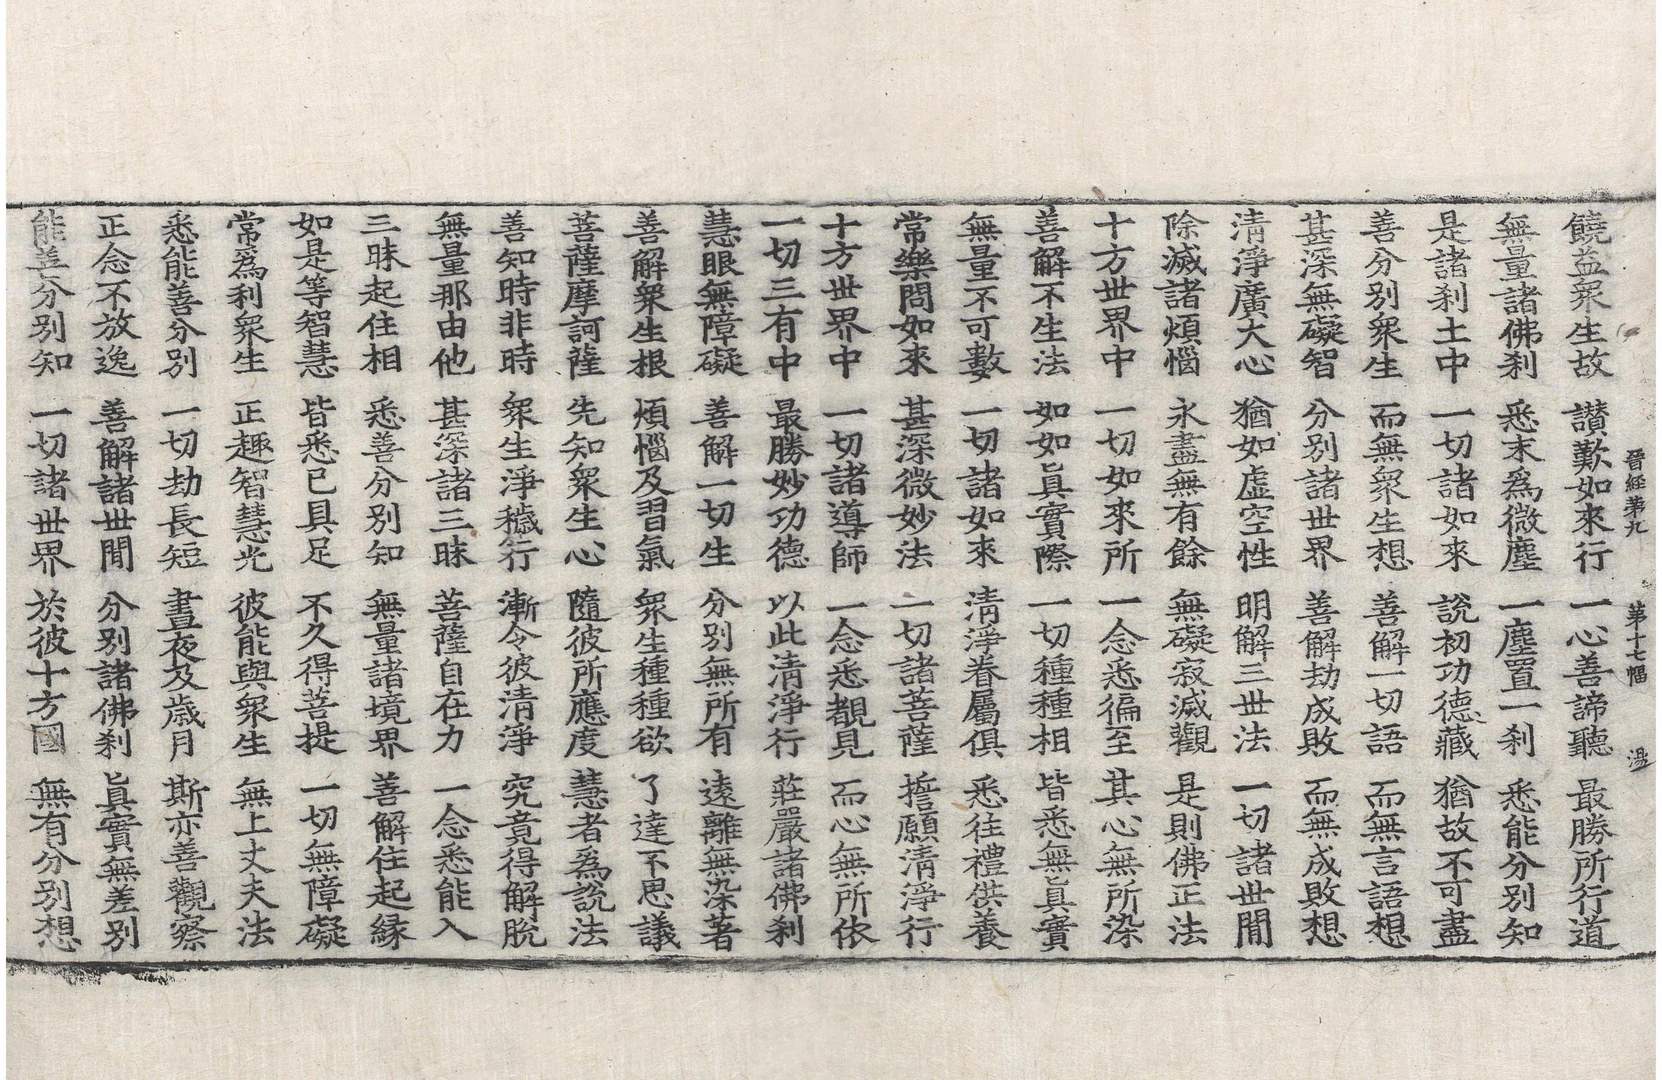 晉經第九　第十七幅　湯
饒益眾生故　讃歎如來行　一心善諦聽　最勝所行道
無量諸佛刹　悉末爲微塵　一塵置一刹　悉能分別知
是諸刹土中　一切諸如來　說初功德藏　猶故不可盡
善分別眾生　而無眾生想　善解一切語　而無言語想
甚深無礙智　分別諸世界　善解劫成敗　而無成敗想
清淨廣大心　猶如虛空性　明解三世法　一切諸世間
除滅諸煩惱　永盡無有餘　無礙寂滅觀　是則佛正法
十方世界中　一切如來所　一念悉徧至　其心無所染
善解不生法　如如眞實際　一切種種相　皆悉無眞實
無量不可數　一切諸如來　清淨眷屬俱　悉往禮供養
常樂問如來　甚深微妙法　一切諸菩薩　擔願清淨行
十方世界中　一切諸導師　一念悉覩見　而心無所依
一切三有中　最勝妙功德　以此清淨行　莊嚴諸佛刹
慧眼無障礙　善解一切生　分別無所有　遠離無染著
善解眾生根　煩惱及習氣　眾生種種欲　了達不思議
菩薩摩訶薩　先知眾生心　隨彼所應度　慧者爲說法
善知時非時　眾生淨穢行　漸令彼清淨　究竟得解脫
無量那由他　甚深諸三昧　菩薩自在力　一念悉能入
三昧起住相　悉善分別知　無量諸境界　善解住起緣
如是等智慧　皆悉已具足　不久得菩提　一切無障礙
常爲利眾生　正趣智慧光　彼能與眾生　無上丈夫法
悉能善分別　一切劫長短　晝夜及歲月　斯亦善觀察
正念不放逸　善解諸世間　分別諸佛刹　眞實無差別
能善分別知　一切諸世界　於彼十方國　無有分別想